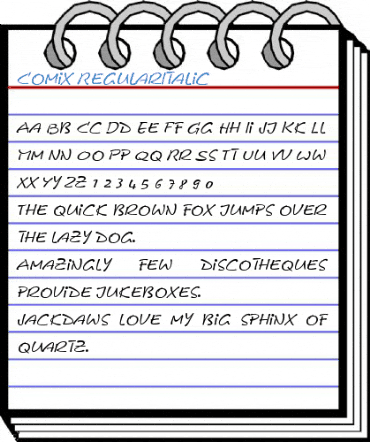 COMiX REGULARITALiC
AA BB CC DD EE FF GG HH Ii JJ KK LL
MM NN OO PP QQ RR SS TT UU VV WW
XX YY ZZ 1 2 3 4 5 6 7 8 9 0
THE QUiCK BROWN FOX JUMPS OVER
THE LAZY DOG.
AMAZiNGLY FEW DiSCOTHEQUES
PROViDE JUKEBOXES.
JACKDAWS LOVE MY BiG SPHiNX OF
QUARTZ.